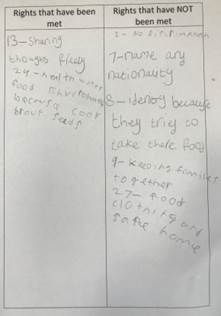 Rights that have been met
Rights that have NOT been met
13-Sharing
thoughts freely
24-health water
food
because cook
seeds
2-No
7-name any
nationality
8-idenoty because
they tried to
take there food
9-keeping families
together
27-food
clothing and
safe home